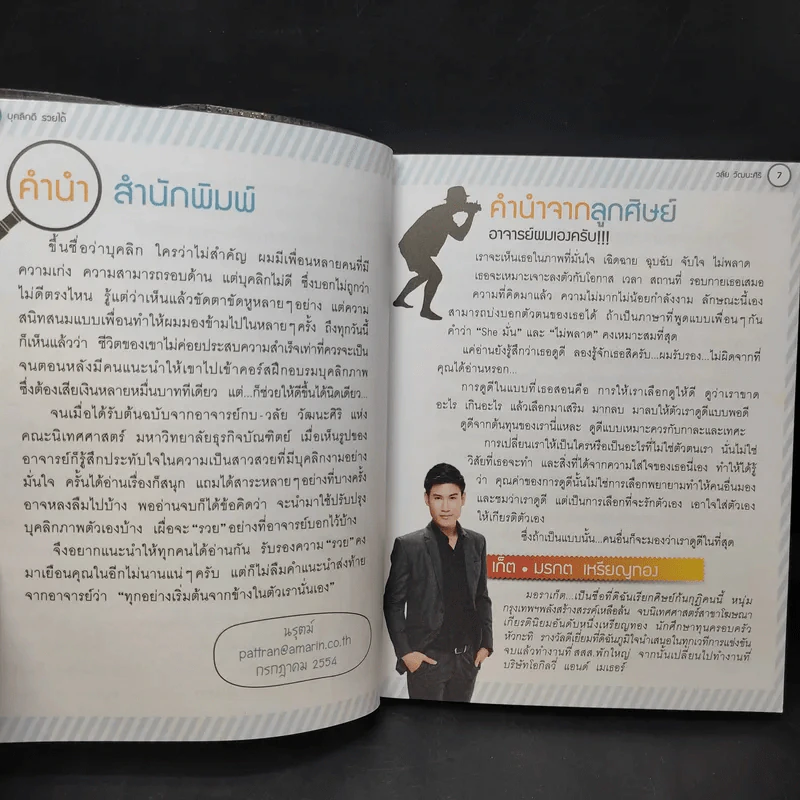 บุคลิกดี รวยได้
คำนำ สำนักพิมพ์
ขึ้นชื่อว่าบุคลิก ใครว่าไม่สำคัญ ผมมีเพื่อนหลายคนที่มี
ความเก่ง ความสามารถรอบด้าน แต่บุคลิกไม่ดี ซึ่งบอกไม่ถูกว่า
ไม่ดีตรงไหน รู้แต่ว่าเห็นแล้วขัดตาขัดหูหลายๆอย่าง แต่ความ
สนิทสนมแบบเพื่อนทำให้ผมมองข้ามไปในหลายๆครั้ง ถึงทุกวันนี้
ก็เห็นแล้วว่า ชีวิตของเขาไม่ค่อยประสบความสำเร็จเท่าที่ควรจะเป็น
จนตอนหลังมีคนแนะนำให้เขาไปเข้าคอร์สฝึกอบรมบุคลิกภาพ
ซึ่งต้องเสียเงินหลายหมื่นบาททีเดียว แต่...ก็ช่วยให้ดีขึ้นได้นิดเดียว...
จนเมื่อได้รับต้นฉบับจากอาจารย์กบ-วลัย วัฒนะศิริ แห่ง
คณะนิเทศศาสตร์ มหาวิทยาลัยธุรกิจบัณฑิตย์ เมื่อเห็นรูปของ
อาจารย์ก็รู้สึกประทับใจในความเป็นสาวสวยที่มีบุคลิกงามอย่าง
มั่นใจ ครั้นได้อ่านเรื่องก็สนุก แถมได้สาระหลายๆอย่างที่บางครั้ง
อาจหลงลืมไปบ้าง พออ่านจบก็ได้ข้อคิดว่า จะนำมาใช้ปรับปรุง
บุคลิกภาพตัวเองบ้าง เผื่อจะ "รวย" อย่างที่อาจารย์บอกไว้บ้าง
จึงอยากแนะนำให้ทุกคนได้อ่านกัน รับรองความ "รวย" คง
มาเยือนคุณในอีกไม่นานแน่ๆครับ แต่ก็ไม่ลืมคำแนะนำส่งท้าย
จากอาจารย์ว่า "ทุกอย่างเริ่มต้นจากข้างในตัวเรานั่นเอง"
นรุตม์
pattran@amarin.co.th
กรกฎาคม 2554
วลัย วัฒนะศิริ 7
คำนำจากลูกศิษย์
อาจารย์ผมเองครับ!!!
เราจะเห็นเธอในภาพที่มั่นใจ เฉิดฉาย ฉุบฉับ จับใจ ไม่พลาด
เธอจะเหมาะเจาะลงตัวกับโอกาส เวลา สถานที่ รอบกายเธอเสมอ
ความที่คิดมาแล้ว ความไม่มากไม่น้อยกำลังงาม ลักษณะนี้เอง
สามารถบ่งบอกตัวตนของเธอได้ ถ้าเป็นภาษาที่พูดแบบเพื่อนๆกัน
คำว่า "She มั่น" และ "ไม่พลาด" คงเหมาะสมที่สุด
แค่อ่านยังรู้สึกว่าเธอดูดี ลองรู้จักเธอสิครับ...ผมรับรอง...ไม่ผิดจากที่
คุณได้อ่านหรอก...
การดูดีในแบบที่เธอสอนคือ การให้เราเลือกดูให้ดี ดูว่าเราขาด
อะไร เกินอะไร แล้วเลือกมาเสริม มากลบ มาลบให้ตัวเราดูดีแบบพอดี
ดูดีจากต้นทุนของเรานี่แหละ ดูดีแบบเหมาะควรกับกาละและเทศะ
การเปลี่ยนเราให้เป็นใครหรือเป็นอะไรที่ไม่ใช่ตัวตนเรา นั่นไม่ใช่
วิสัยที่เธอจะทำ และสิ่งที่ได้จากความใส่ใจของเธอนี่เอง ทำให้ได้รู้
ว่า คุณค่าของการดูดีนั้นไม่ใช่การเลือกพยายามทำให้คนอื่นมอง
และชมว่าเราดูดี แต่เป็นการเลือกที่จะรักตัวเอง เอาใจใส่ตัวเอง
ให้เกียรติตัวเอง
ซึ่งถ้าเป็นแบบนั้น...คนอื่นก็จะมองว่าเราดูดีในที่สุด
เก็ต • มรกต เหรียญทอง
มอราเก็ต...เป็นชื่อที่ดิฉันเรียกศิษย์ก้นกุฏิคนนี้ หนุ่ม
กรุงเทพฯพลังสร้างสรรค์เหลือล้น จบนิเทศศาสตร์สาขาโฆษณา
เกียรตินิยมอันดับหนึ่งเหรียญทอง นักศึกษาทุนครอบครัว
หัวกะทิ รางวัลดีเยี่ยมที่ดิฉันภูมิใจนำเสนอในทุกเวทีการแข่งขัน
จบแล้วทำงานที่ สสส.พักใหญ่ จากนั้นเปลี่ยนไปทำงานที่
บริษัทโอกิลวี่ แอนด์ เมเธอร์